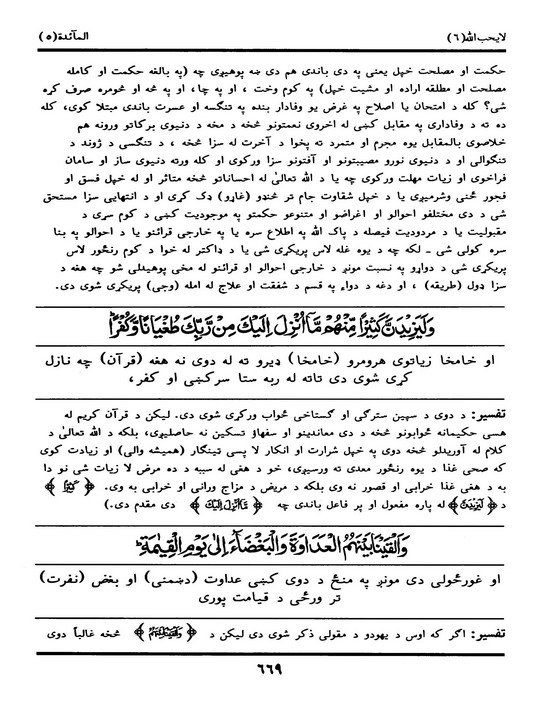 لايحب الله(٦) المآئدة(٥)
حکمت او مصلحت خپل يعنې په دې باندې هم دی ښه پوهيږي چه (په بالغه حکمت او کامله
مصلحت او مطلقه اراده او مشيت خپل) په کوم وخت ، او په چا، او په څه او څومره صرف کړه
شي؟ کله د امتحان يا اصلاح په غرض يو وفادار بنده په تنګسه او عسرت باندې مبتلا کوي، کله
ده ته د وفادارۍ په مقابل کښې له اخروي نعمتونو څخه د مخه د دنيوي برکاتو ورونه هم
خلاصوي بالمقابل يوه مجرم او متمرد ته پخوا د آخرت له سزا څخه ، د تنګسې د ژوند د
تنګوالي او د دنيوي نورو مصيبتونو او آفتونو سزا ورکوي او کله ورته دنيوي ساز او سامان
فراخوي او زيات مهلت ورکوي چه يا د الله تعالىٰ له احساناتو څخه متاثر او له خپل فسق او
فجور څنې وشرميږي يا د خپل شقاوت جام تر څنډو (غاړو) ډک کړي او د انتهايي سزا مستحق
شي د دې مختلفو احوالو او اغراضو او متنوعو حکمتو په موجوديت کښې د کوم سړي د
مقبوليت يا د مردوديت فيصله د پاک الله په اطلاع سره يا په خارجي قرائنو يا د احوالو په بنا
سره کولى شي ـ لکه چه د يوه غله لاس پريکړي شي يا د ډاکټر له خوا د کوم رنځور لاس
پريکړى شي د دواړو په نسبت مونږ د خارجي احوالو او قرائنو له مخې پوهيدلى شو چه هغه د
سزا ډول (طريقه) ، او دغه د دواء په قسم د شفقت او علاج له امله (وجې) پريکړى شوى دى.
وَلَيَزِيدَنَّ كَثِيرًا مِّنْهُم مَّآ أُنزِلَ إِلَيْكَ مِن رَّبِّكَ طُغْيَانًا وَكُفْرًا
او خامخا زياتوي هرومرو (خامخا) ډيرو ته له دوى نه هغه (قرآن) چه نازل
کړى شوى دى تاته له ربه ستا سرکښي او کفر،
تفسير: د دوى د سپين سترګۍ او ګستاخۍ ځواب ورکړى شوى دى. ليکن د قرآن کريم له
هسې حکيمانه ځوابونو څخه د دې معاندينو او سفهاؤ تسکين نه حاصليږي، بلکه د الله تعالىٰ د
کلام له آوريدلو څخه دوى په خپل شرارت او انکار لا پسې ټينګار (هميشه والي) او زيادت کوي
که صحي غذا د يوه رنځور معدې ته ورسيږي، خو د هغې له سببه د ده مرض لا زيات شي نو دا
به د هغې غذا خرابي او قصور نه وي بلکه د مريض د مزاج وراني او خرابي به وي. ﴿كَثِيرًا﴾
د ﴿لَيَزِيدَنَّ﴾ له پاره مفعول او پر فاعل باندې چه ﴿مَّآ أُنزِلَ إِلَيْكَ﴾ دى مقدم دى.)
وَأَلْقَيْنَا بَيْنَهُمُ الْعَدَاوَةَ وَالْبَغْضَآءَ إِلَىٰ يَوْمِ الْقِيٰمَةِ
او غورځولى دى مونږ په منځ د دوى کښې عداوت (دښمني) او بغض (نفرت)
تر ورځې د قيامت پورې
تفسير: اګر که اوس د يهودو د مقولى ذکر شوى دى ليکن د ﴿وَأَلْقَيْنَا بَيْنَهُمُ﴾ څخه غالباً دوى
٦٦٩